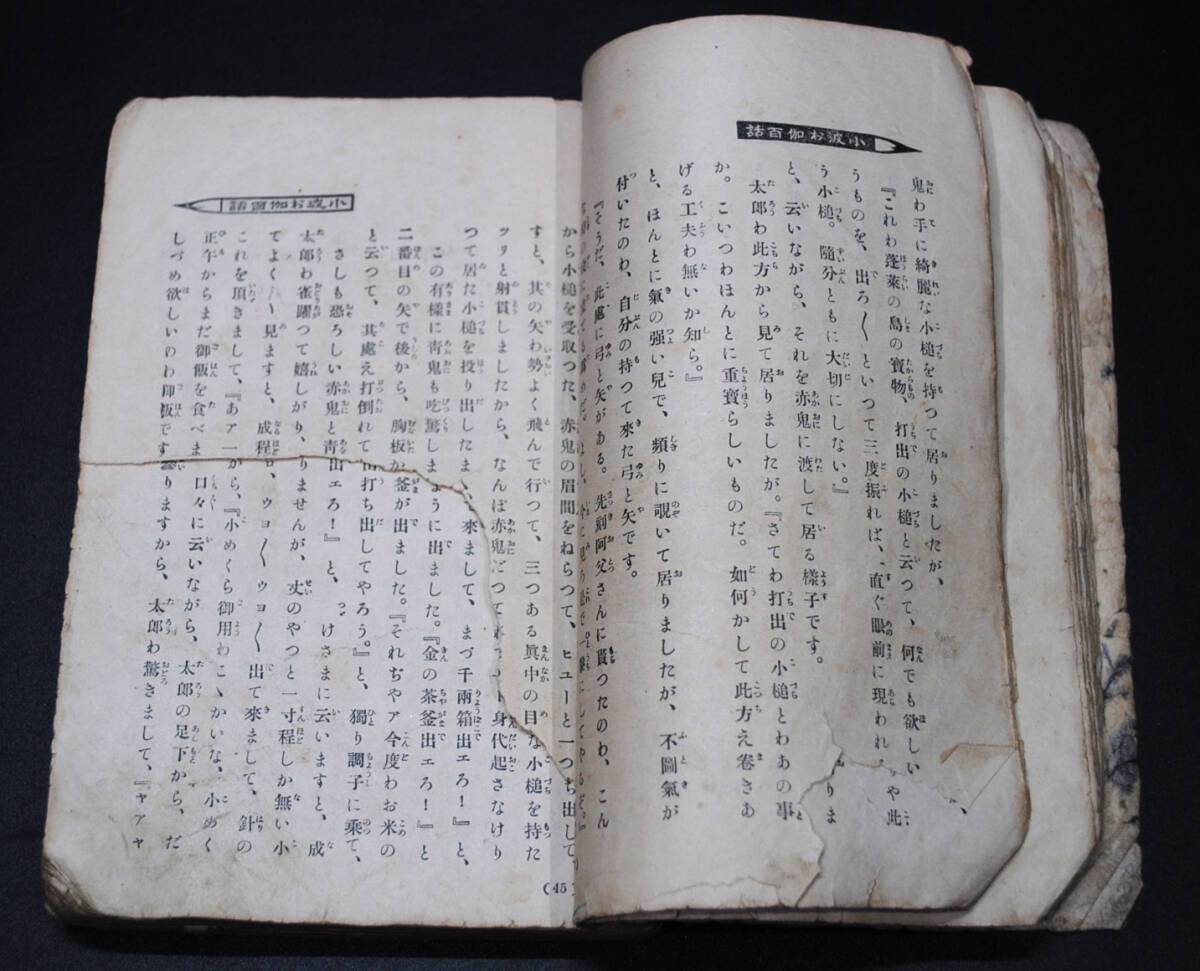 小波お伽百話
鬼わ手に綺麗な小槌を持つて居りましたが、
『これわ蓬萊の島の寶物、打出の小槌と云つて、何でも欲しい
うものを、出ろ〱といつて三度振れば、直ぐ眼前に現われ や此
う小槌。隨分ともに大切にしない。』
と、云いながら、それを赤鬼に渡して居る樣子です。
太郎わ此方から見て居りましたが。『さてわ打出の小槌とわあの事
か。こいつわほんとに重寶らしいものだ。如何かして此方え卷きあ
げる工夫わ無いか知ら。』
と、ほんとに氣の强い兒で、頻りに覗いて居りましたが、不圖氣が
付いたのわ、自分の持つて來た弓と矢です。
『そうだ、此處に弓と矢がある。先刻阿父さんに貰つたのわ、こん
小波お伽百話
から小槌を受取つた、赤鬼の眉間をねらつて、ヒューと一つ
すと、其の矢わ勢よく飛んで行つて、三つある眞中の目
フリと射貫しましたから、なんぼ赤鬼
つて居た小槌を投り出したまゝ
この有樣に靑鬼も吃驚しま
二番目の矢で後から、胸板
と云つて、其處え打倒れて
さしも恐ろしい赤鬼と靑
太郎わ雀躍つて嬉しがり、
てよく〱見ますと、成程
これを頂きまして、『あア
正午からまだ御飯を食べま
しづめ欲しいのわ御飯です
ち出して
な小槌を持た
身代起さなけり
來まして、まづ千兩箱出エろ！』と、
ように出ました。『金の茶釜出エろ！』と
釜が出ました。『それぢやア今度わお米の
打ち出してやろう。』と、獨り調子に乘て、
出エろ！』と、 けさまに云いますと、成
りませんが、丈のやつと一寸程しか無い小
ウヨ〱 ウヨ〱 出て來まして、針の
から、『小めくら御用わこゝかいな、小めく
口々に云いながら、太郎の足下から、だ
りますから、太郎わ驚きまして、『ヤアヤ
(45)